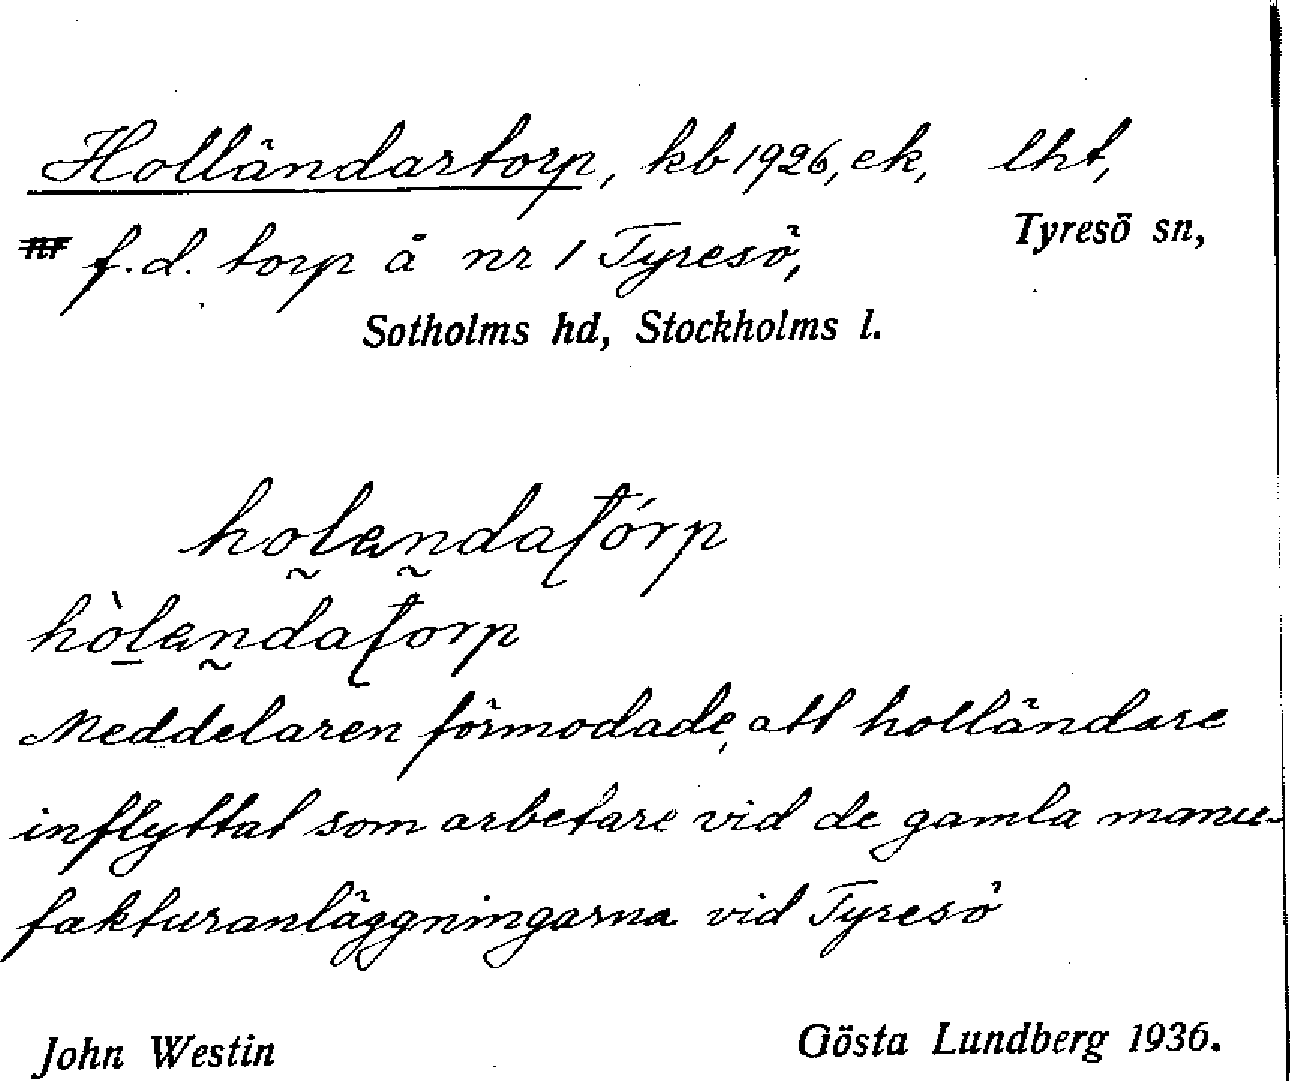 Holländartorp, kb 1926, ek, lht,
f.d. torp å nr 1 Tyresö, Tyresö sn,
Sotholms hd, Stockholms l.
holandatórp
hòlandatorp
Meddelaren förmodade, att holländare
inflyttat som arbetare vid de gamla manu-
fakturanläggningarna vid Tyresö
John Westin Gösta Lundberg 1936.